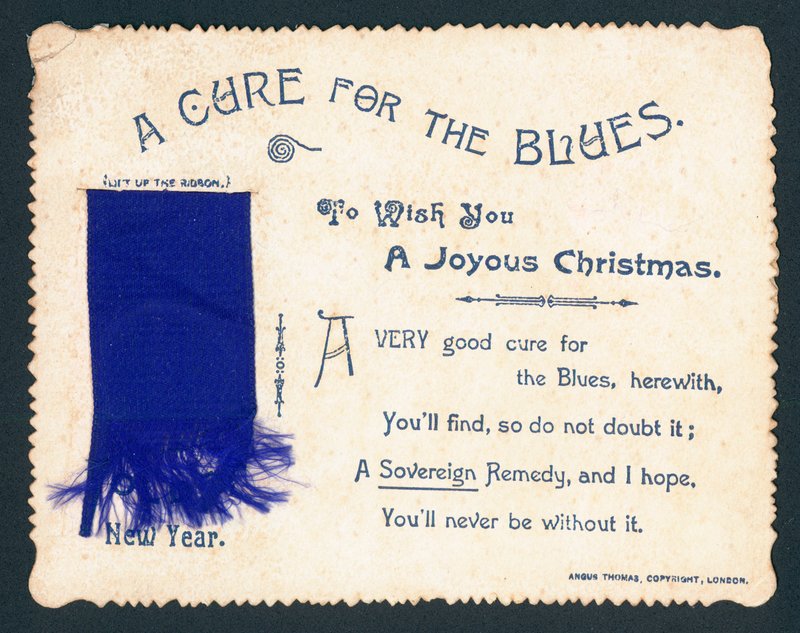 A CURE FOR THE BLUES.
{LIFT UP THE RIBBON.}
To Wish You
A Joyous Christmas.
A VERY good cure for
the Blues, herewith,
You'll find, so do not doubt it;
A Sovereign Remedy, and I hope,
You'll never be without it.
New Year.
ANGUS THOMAS, COPYRIGHT, LONDON.